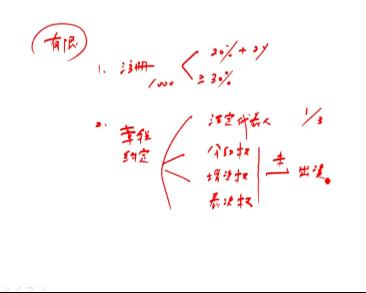 有限
1. 注册 1000 20% + 2y
≥ 30%
2. 章程约定
法定代表人 1/3
分红权
增资权
表决权
未 出资